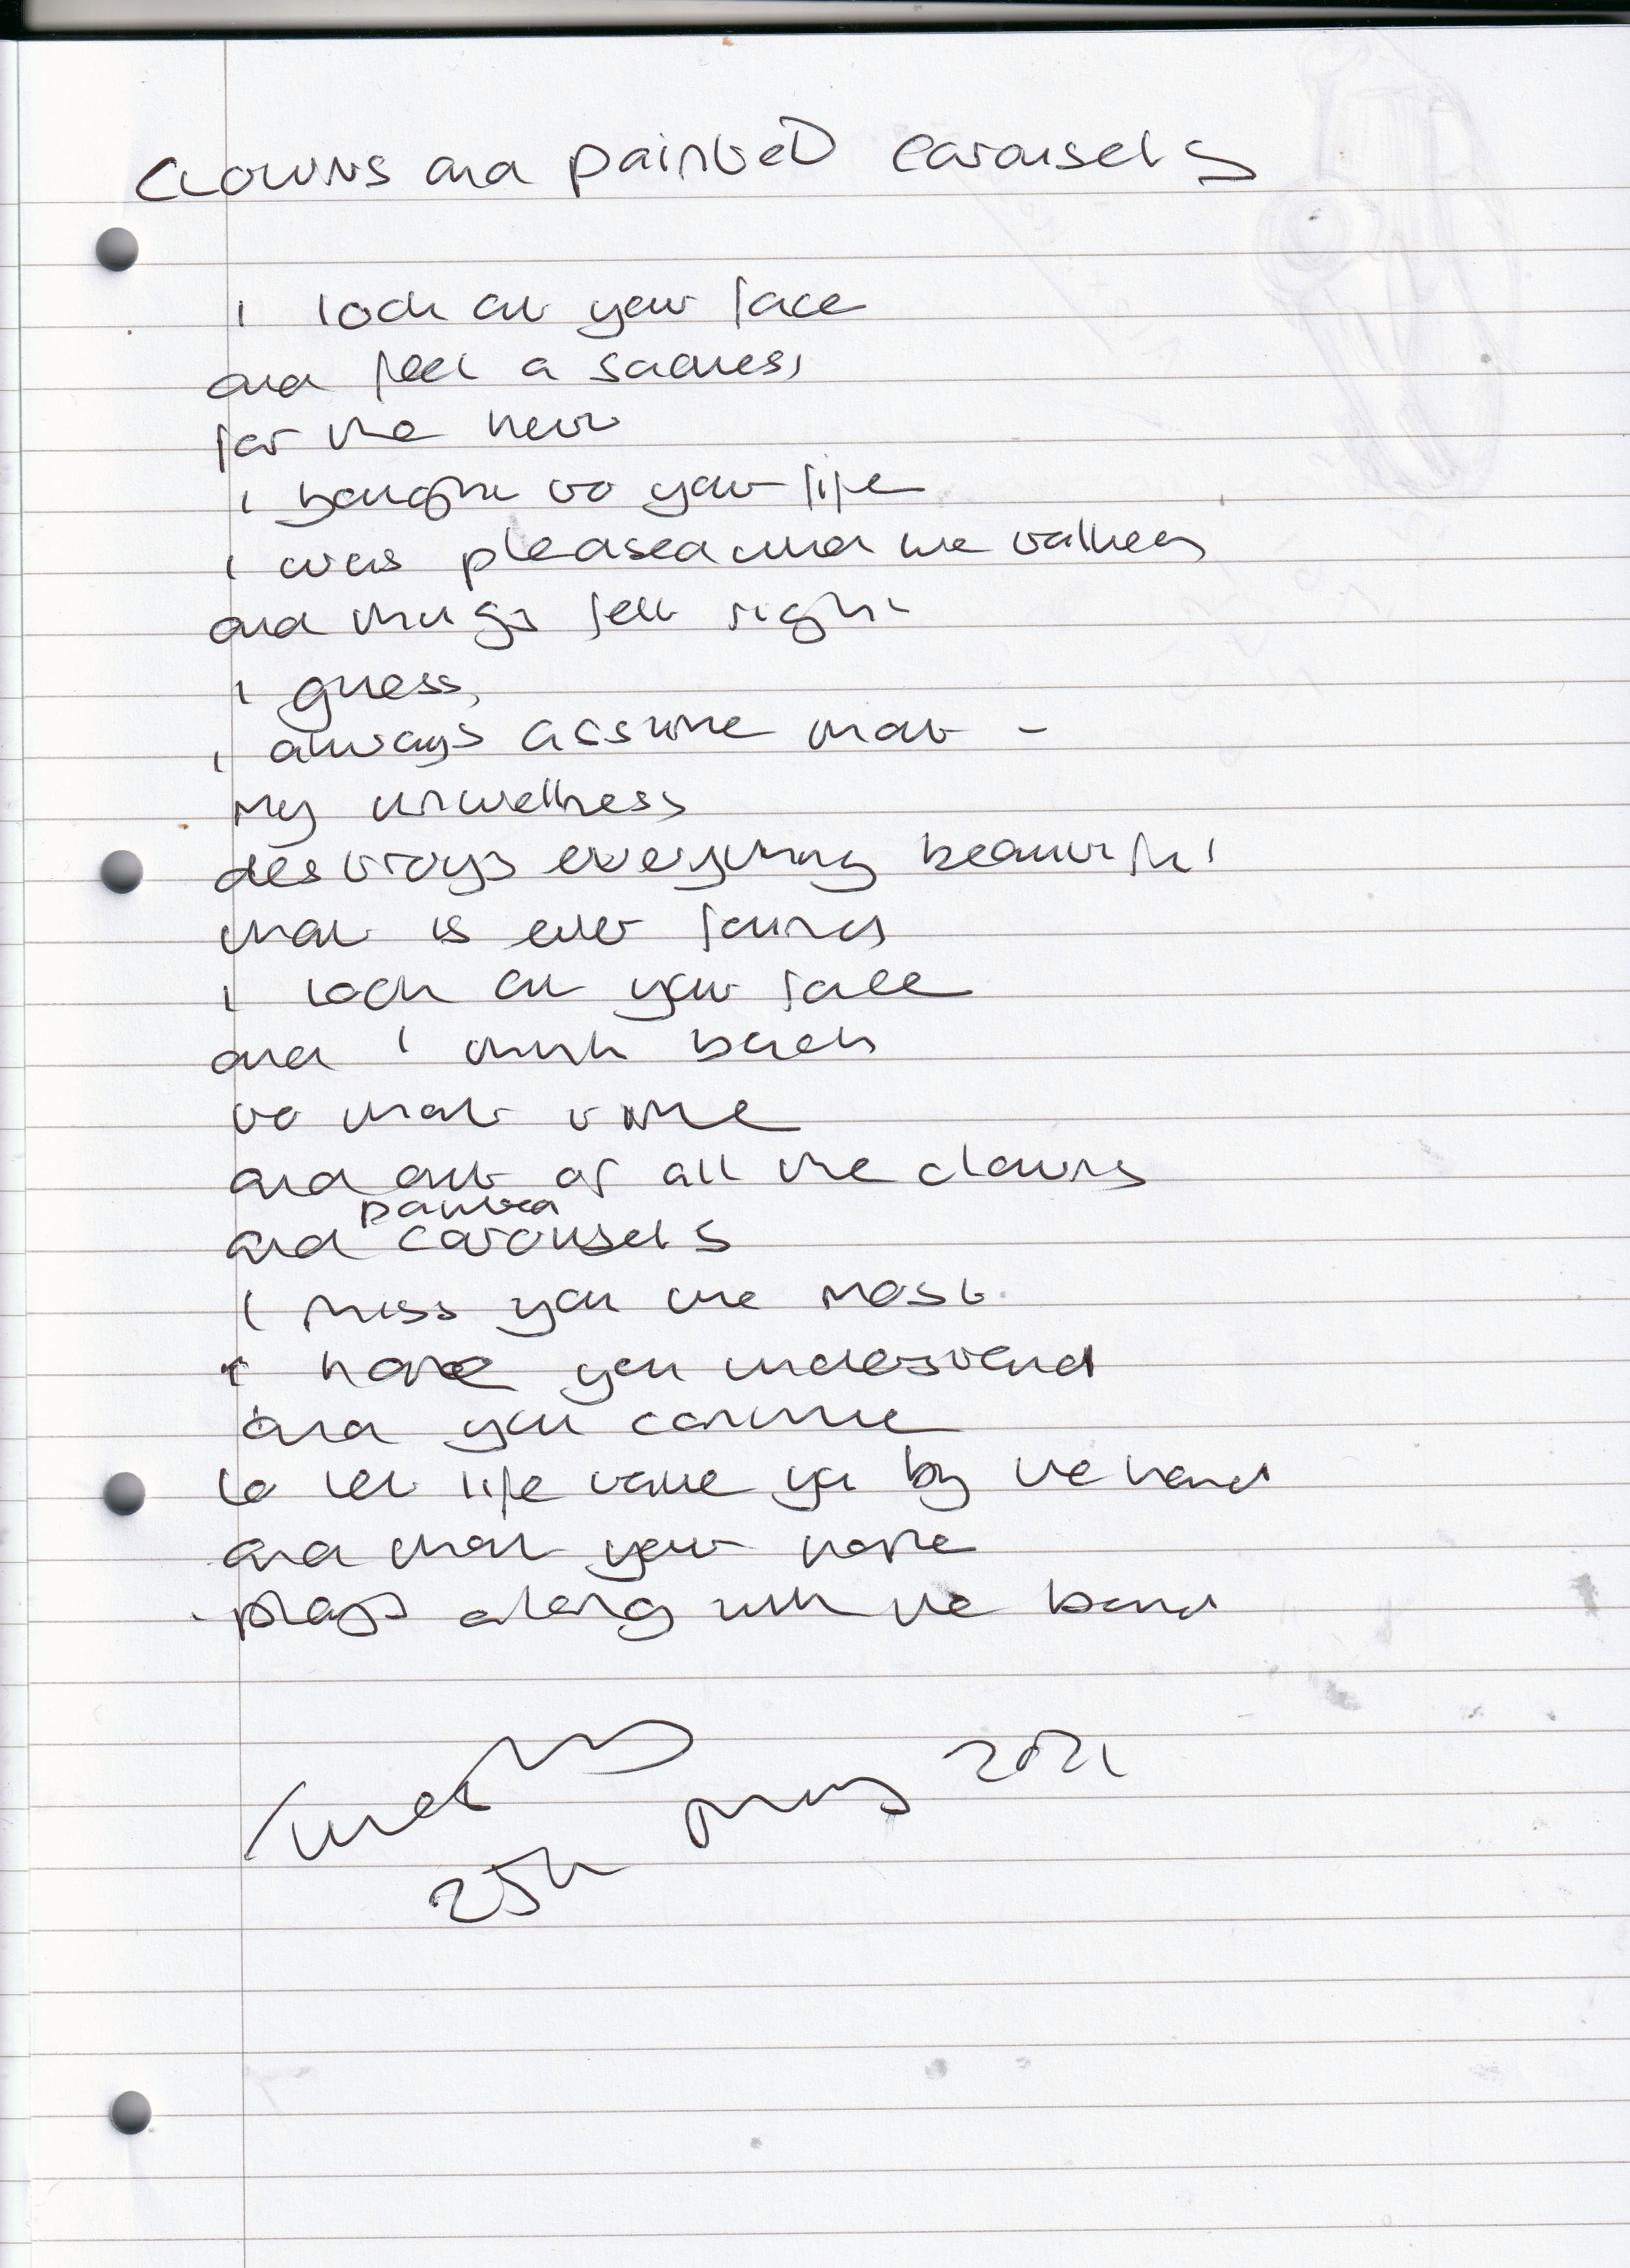 Clowns and painted carousels
I look at your face
and feel a sadness,
for the hurt
I bought to your life
I was pleased when we talked
and things felt right
I guess,
I always assume that -
My unwellness
destroys everything beautiful
that is ever found
I look at your face
and I think back
to that time
and out of all the clowns
painted
and carousels
I miss you the most.
I hope you understand
and you continue
to let life take you by the hand
and that your
plays along with the band
25th May 2021